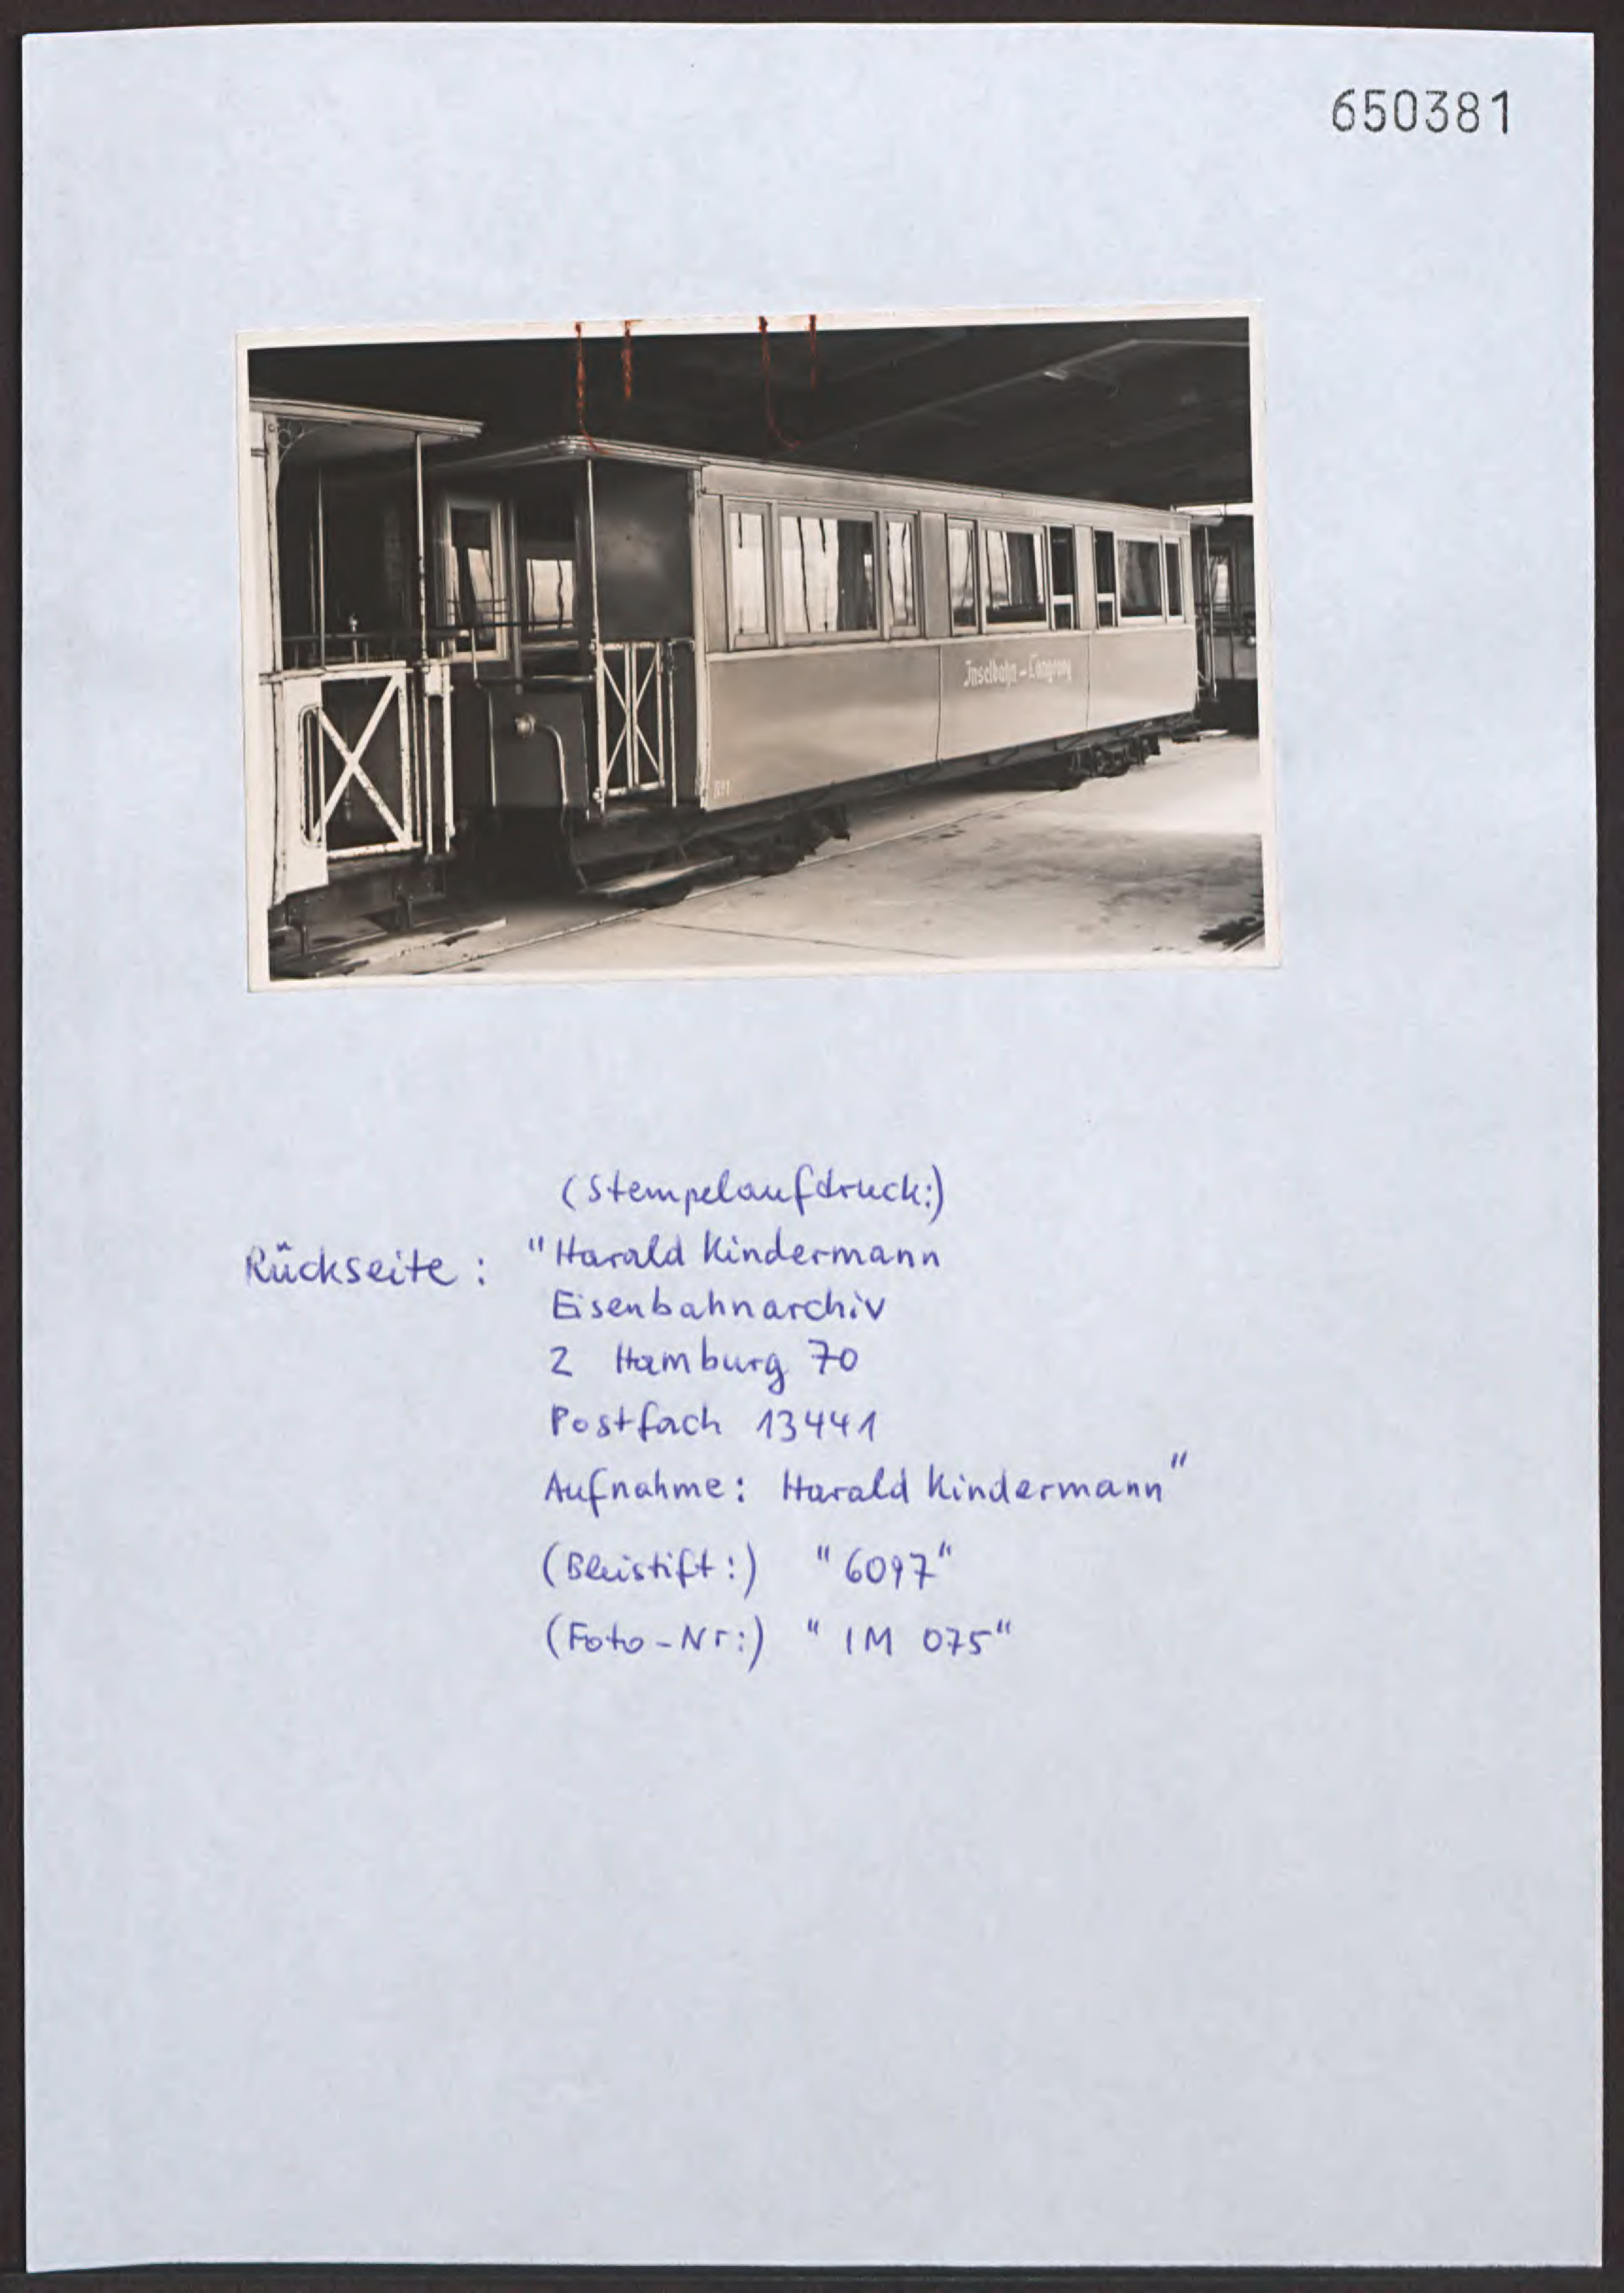 650381
Inselbahn-Langeoog
(Stempelaufdruck:)
Rückseite: "Harald Kindermann
Eisenbahnarchiv
2 Hamburg 70
Postfach 13441
Aufnahme: Harald Kindermann"
(Bleistift:) "6097"
(Foto-Nr:) "IM 075"